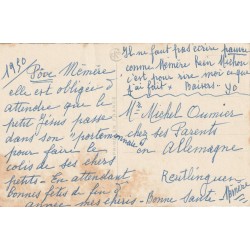 1930
Pôve Mémère
elle est obligée d'
attendre que le
petit Jésus passe
dans son "portemonnaie"
pour faire le
colis de ses chers
petits - En attendant
bonnes fêtes de fin d'
année mes chéris - Bonne Santé
Mémère
Il ne faut pas écrire pauvre
comme Mémère Jean Michon
c'est pour rire moi ce que
j'ai fait" Baisers -
Mr Michel Oumier
chez ses Parents
en Allemagne
Reutlinguen